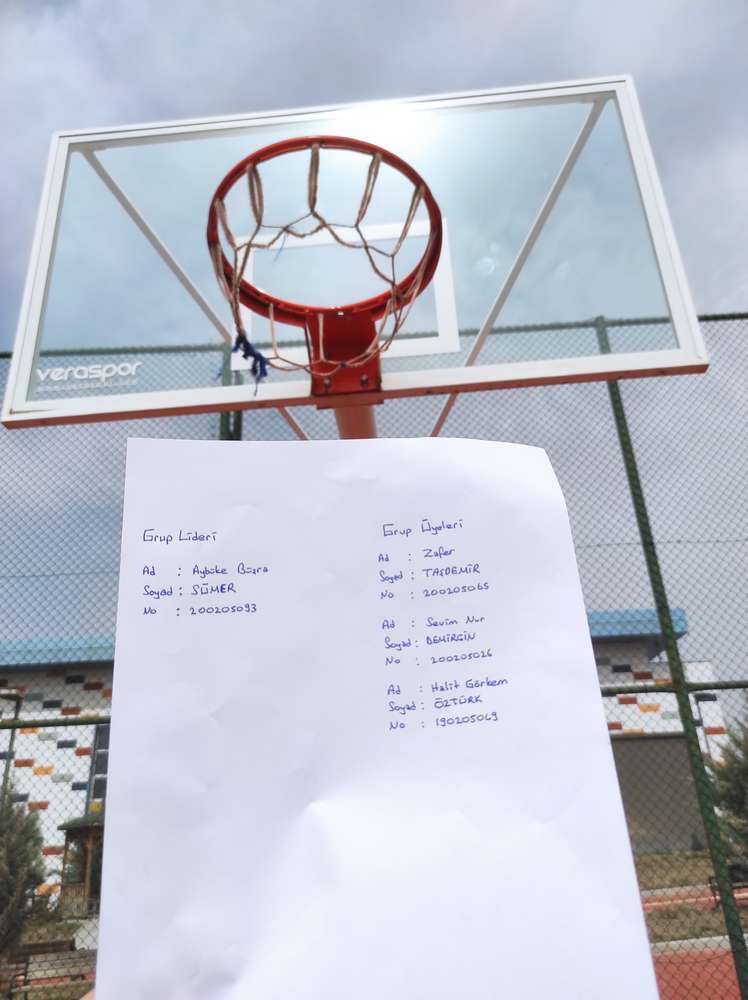 veraspor
Grup Lideri
Ad : Aybüke Büşra
Soyad : SÜMER
No : 200205093
Grup Üyeleri
Ad : Zafer
Soyad : TAŞDEMİR
No : 200205065
Ad : Sevim Nur
Soyad : DEMİRGİN
No : 200205026
Ad : Halit Görkem
Soyad : ÖZTÜRK
No : 190205069